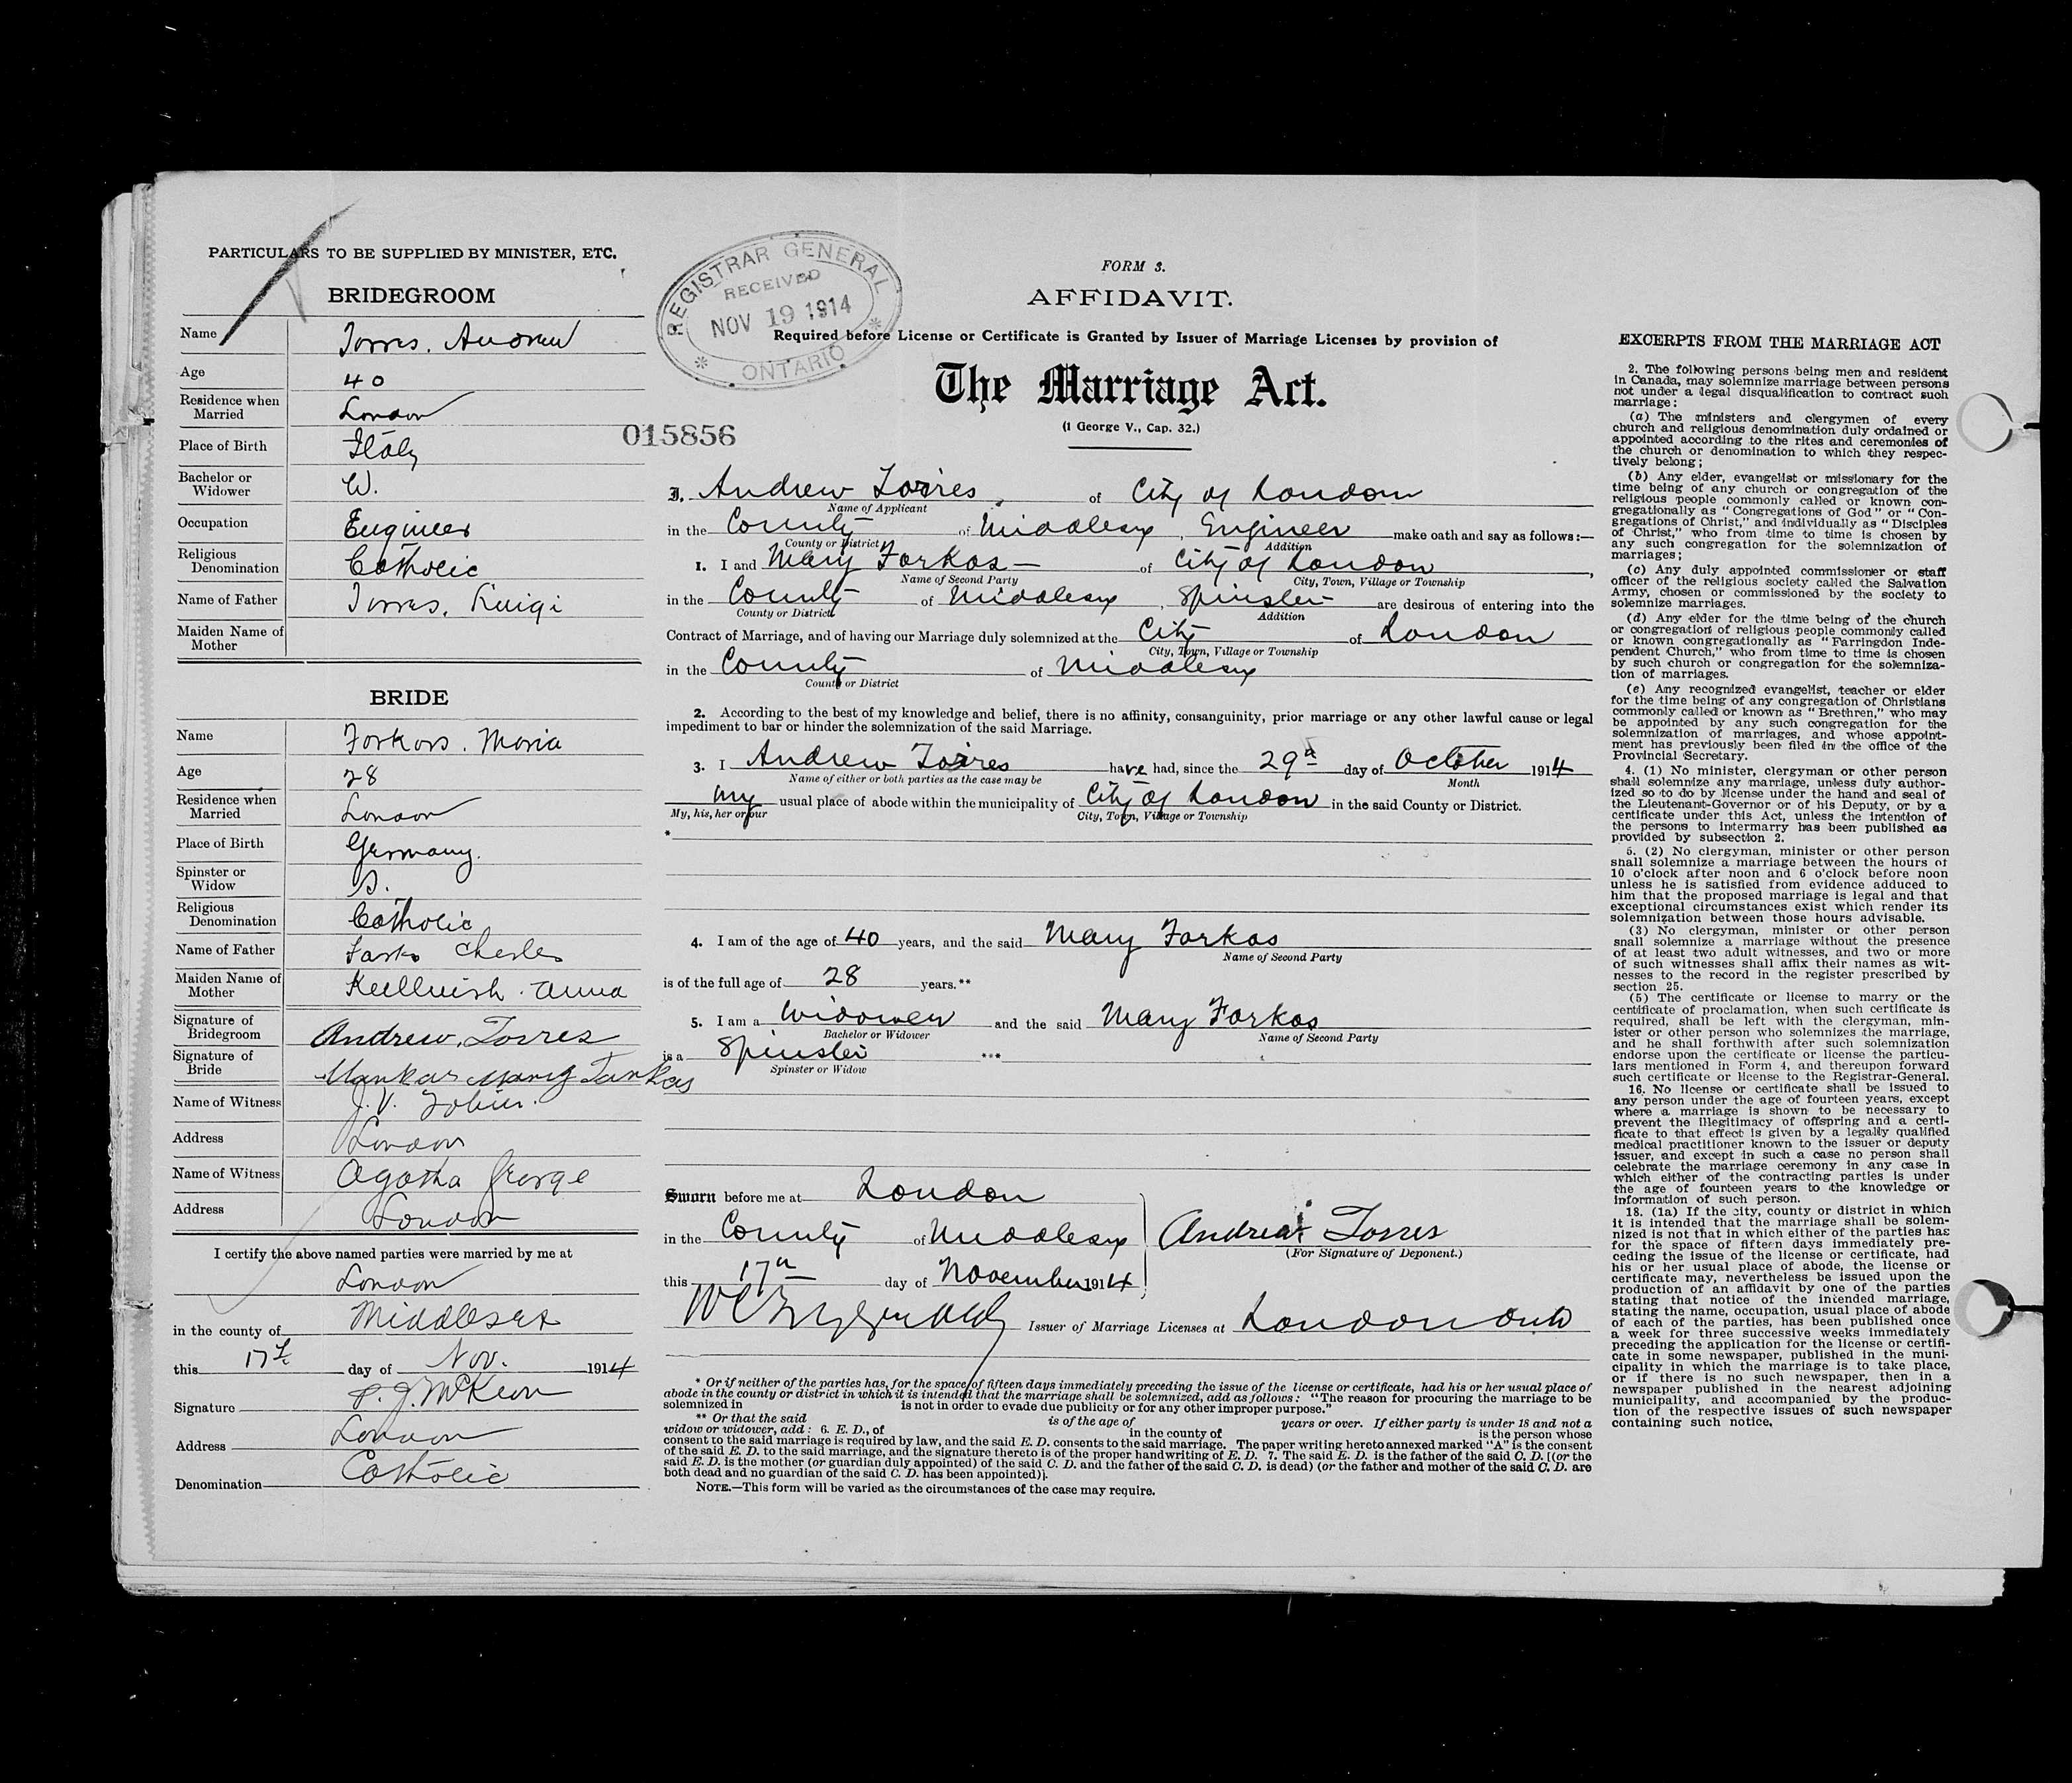 PARTICULARS TO BE SUPPLIED BY MINISTER, ETC.
BRIDEGROOM
Name Torres, Andrew
Age 40
Residence when Married London
Place of Birth Italy
Bachelor or Widower W.
Occupation Engineer
Religious Denomination Catholic
Name of Father Torres, Luigi
Maiden Name of Mother
BRIDE
Name Farkas, Maria
Age 28
Residence when Married London
Place of Birth Germany.
Spinster or Widow S.
Religious Denomination Catholic
Name of Father Charles
Maiden Name of Mother Anna
Signature of Bridegroom Andrew Torres
Signature of Bride Mary Farkas
Name of Witness J. V. Tobin.
Address London
Name of Witness Agatha George
Address London
I certify the above named parties were married by me at
London
in the county of Middlesex
this 17th day of Nov. 1914
Signature P. J. McKeon
Address London
Denomination Catholic
REGISTRAR GENERAL
RECEIVED
NOV 19 1914
ONTARIO
015856
FORM 3.
AFFIDAVIT.
Required before License or Certificate is Granted by Issuer of Marriage Licenses by provision of
The Marriage Act.
(1 George V., Cap. 32.)
I, Andrew Torres, of City of London
Name of Applicant
in the County of Middlesex, Engineer make oath and say as follows:—
County or District Addition
1. I and Mary Farkas — of City of London,
Name of Second Party City, Town, Village or Township
in the County of Middlesex, Spinster are desirous of entering into the
County or District Addition
Contract of Marriage, and of having our Marriage duly solemnized at the City of London
City, Town, Village or Township
in the County of Middlesex
County or District
2. According to the best of my knowledge and belief, there is no affinity, consanguinity, prior marriage or any other lawful cause or legal
impediment to bar or hinder the solemnization of the said Marriage.
3. I Andrew Torres have had, since the 29th day of October 1914
Name of either or both parties as the case may be Month
my usual place of abode within the municipality of City of London in the said County or District.
My, his, her or our City, Town, Village or Township
*
4. I am of the age of 40 years, and the said Mary Farkas
Name of Second Party
is of the full age of 28 years.**
5. I am a Widower and the said Mary Farkas
Bachelor or Widower Name of Second Party
is a Spinster ***
Spinster or Widow
Sworn before me at London
in the County of Middlesex
this 17th day of November 1914
Andrew Torres
(For Signature of Deponent.)
Issuer of Marriage Licenses at London Ont
* Or if neither of the parties has, for the space of fifteen days immediately preceding the issue of the license or certificate, had his or her usual place of
abode in the county or district in which it is intended that the marriage shall be solemnized, add as follows: "The reason for procuring the marriage to be
solemnized in is not in order to evade due publicity or for any other improper purpose."
** Or that the said is of the age of years or over. If either party is under 18 and not a
widow or widower, add: 6. E. D., of in the county of is the person whose
consent to the said marriage is required by law, and the said E. D. consents to the said marriage. The paper writing hereto annexed marked "A" is the consent
of the said E. D. to the said marriage, and the signature thereto is of the proper handwriting of E. D. 7. The said E. D. is the father of the said C. D. [(or the
said E. D. is the mother (or guardian duly appointed) of the said C. D. and the father of the said C. D. is dead) (or the father and mother of the said C. D. are
both dead and no guardian of the said C. D. has been appointed)].
NOTE.—This form will be varied as the circumstances of the case may require.
EXCERPTS FROM THE MARRIAGE ACT
2. The following persons being men and resident
in Canada, may solemnize marriage between persons
not under a legal disqualification to contract such
marriage:
(a) The ministers and clergymen of every
church and religious denomination duly ordained or
appointed according to the rites and ceremonies of
the church or denomination to which they respec-
tively belong;
(b) Any elder, evangelist or missionary for the
time being of any church or congregation of the
religious people commonly called or known con-
gregationally as "Congregations of God" or "Con-
gregations of Christ," and individually as "Disciples
of Christ," who from time to time is chosen by
any such congregation for the solemnization of
marriages;
(c) Any duly appointed commissioner or staff
officer of the religious society called the Salvation
Army, chosen or commissioned by the society to
solemnize marriages.
(d) Any elder for the time being of the church
or congregation of religious people commonly called
or known congregationally as "Farringdon Inde-
pendent Church," who from time to time is chosen
by such church or congregation for the solemniza-
tion of marriages.
(e) Any recognized evangelist, teacher or elder
for the time being of any congregation of Christians
commonly called or known as "Brethren," who may
be appointed by any such congregation for the
solemnization of marriages, and whose appoint-
ment has previously been filed in the office of the
Provincial Secretary.
4. (1) No minister, clergyman or other person
shall solemnize any marriage, unless duly author-
ized so to do by license under the hand and seal of
the Lieutenant-Governor or of his Deputy, or by a
certificate under this Act, unless the intention of
the persons to intermarry has been published as
provided by subsection 2.
5. (2) No clergyman, minister or other person
shall solemnize a marriage between the hours of
10 o'clock after noon and 6 o'clock before noon
unless he is satisfied from evidence adduced to
him that the proposed marriage is legal and that
exceptional circumstances exist which render its
solemnization between those hours advisable.
(3) No clergyman, minister or other person
shall solemnize a marriage without the presence
of at least two adult witnesses, and two or more
of such witnesses shall affix their names as wit-
nesses to the record in the register prescribed by
section 25.
(5) The certificate or license to marry or the
certificate of proclamation, when such certificate is
required, shall be left with the clergyman, min-
ister or other person who solemnizes the marriage,
and he shall forthwith after such solemnization
endorse upon the certificate or license the particu-
lars mentioned in Form 4, and thereupon forward
such certificate or license to the Registrar-General.
16. No license or certificate shall be issued to
any person under the age of fourteen years, except
where a marriage is shown to be necessary to
prevent the illegitimacy of offspring and a certi-
ficate to that effect is given by a legally qualified
medical practitioner known to the issuer or deputy
issuer, and except in such a case no person shall
celebrate the marriage ceremony in any case in
which either of the contracting parties is under
the age of fourteen years to the knowledge or
information of such person.
18. (1a) If the city, county or district in which
it is intended that the marriage shall be solem-
nized is not that in which either of the parties has
for the space of fifteen days immediately pre-
ceding the issue of the license or certificate, had
his or her usual place of abode, the license or
certificate may, nevertheless be issued upon the
production of an affidavit by one of the parties
stating that notice of the intended marriage,
stating the name, occupation, usual place of abode
of each of the parties, has been published once
a week for three successive weeks immediately
preceding the application for the license or certifi-
cate in some newspaper, published in the muni-
cipality in which the marriage is to take place,
or if there is no such newspaper, then in a
newspaper published in the nearest adjoining
municipality, and accompanied by the produc-
tion of the respective issues of such newspaper
containing such notice.